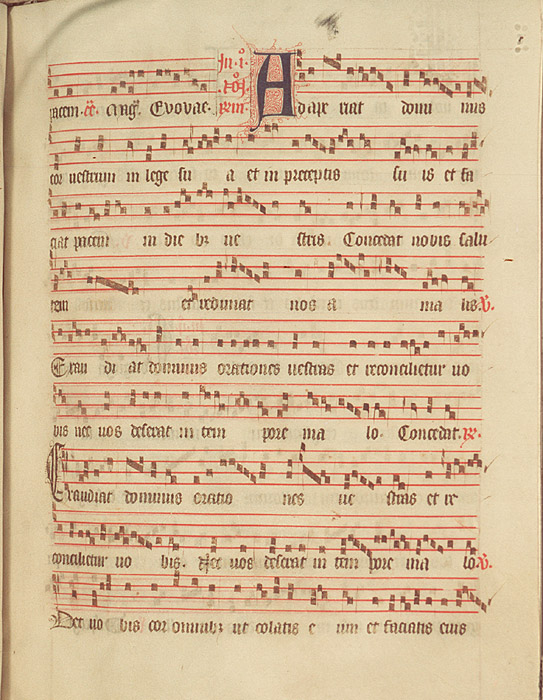 pacem. Evovae. Adape riat domi nus
cor uestrum in lege su a et in preceptis su is et fa
ciat pacem in die bz ue stris Concedat nobis salu
tem et redimat nos a ma lis. V.
Exau di at dominus orationes uestras et reconcilietur uo
bis nec uos deserat in tem pore ma lo. Concedat.
Exaudiat dominus oratio nes ue stras et re
concilietur uo bis. Nec uos deserat in tem pore ma lo. V.
Det uo bis cor omnibz ut colatis e um et faciatis eius